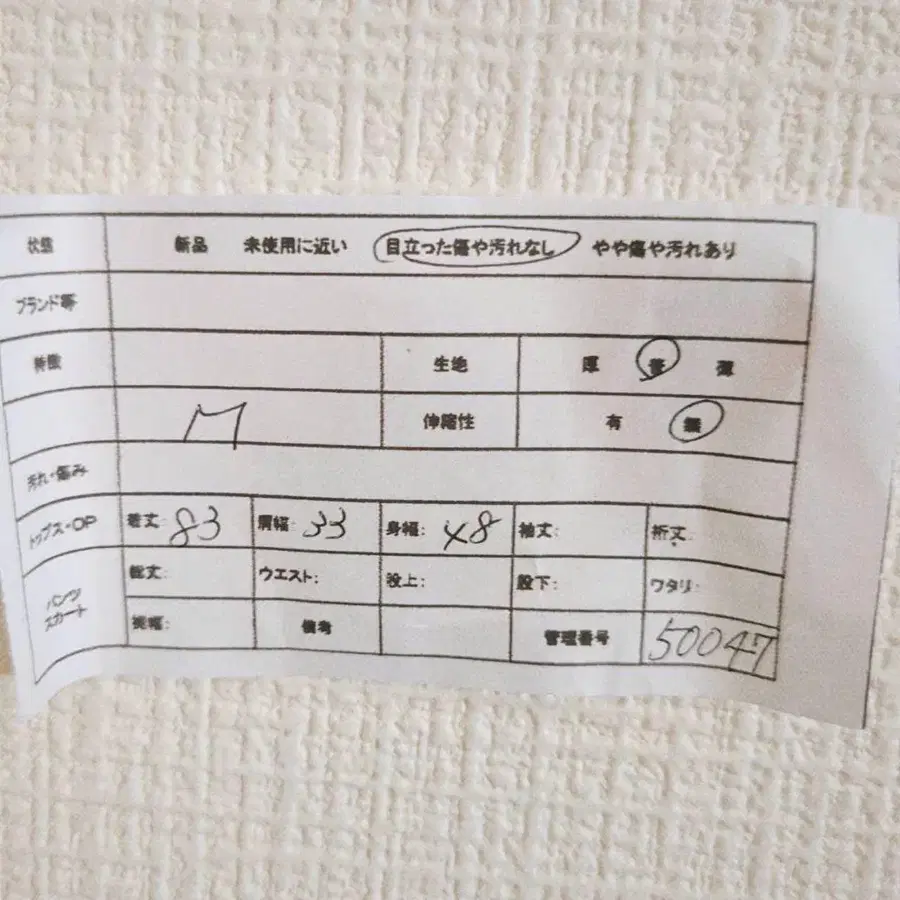 状態 新品 未使用に近い 目立った傷や汚れなし やや傷や汚れあり
ブランド等
特徴 生地 厚 普 薄
M 伸縮性 有 無
汚れ・傷み
トップス・OP 着丈: 83 肩幅: 33 身幅: 48 袖丈: 裄丈:
パンツ
スカート
総丈: ウエスト: 股上: 股下: ワタリ:
裾幅: 備考 管理番号 50047